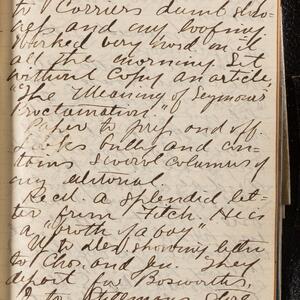 to Carriers dumb show-
ers and my
worked very hard on it
all the morning. Set
without Copy an article,
"The Meaning of Seymour's
Proclamation."
Paper to press and off.
Looks bully and con-
tains several columns of
my editorial.
Recd. a splendid let-
ter from Fitch. He is
a "broth of a boy"
Up to dex, showing letter
to Chas. and Ju. They
depart for Bosworths,